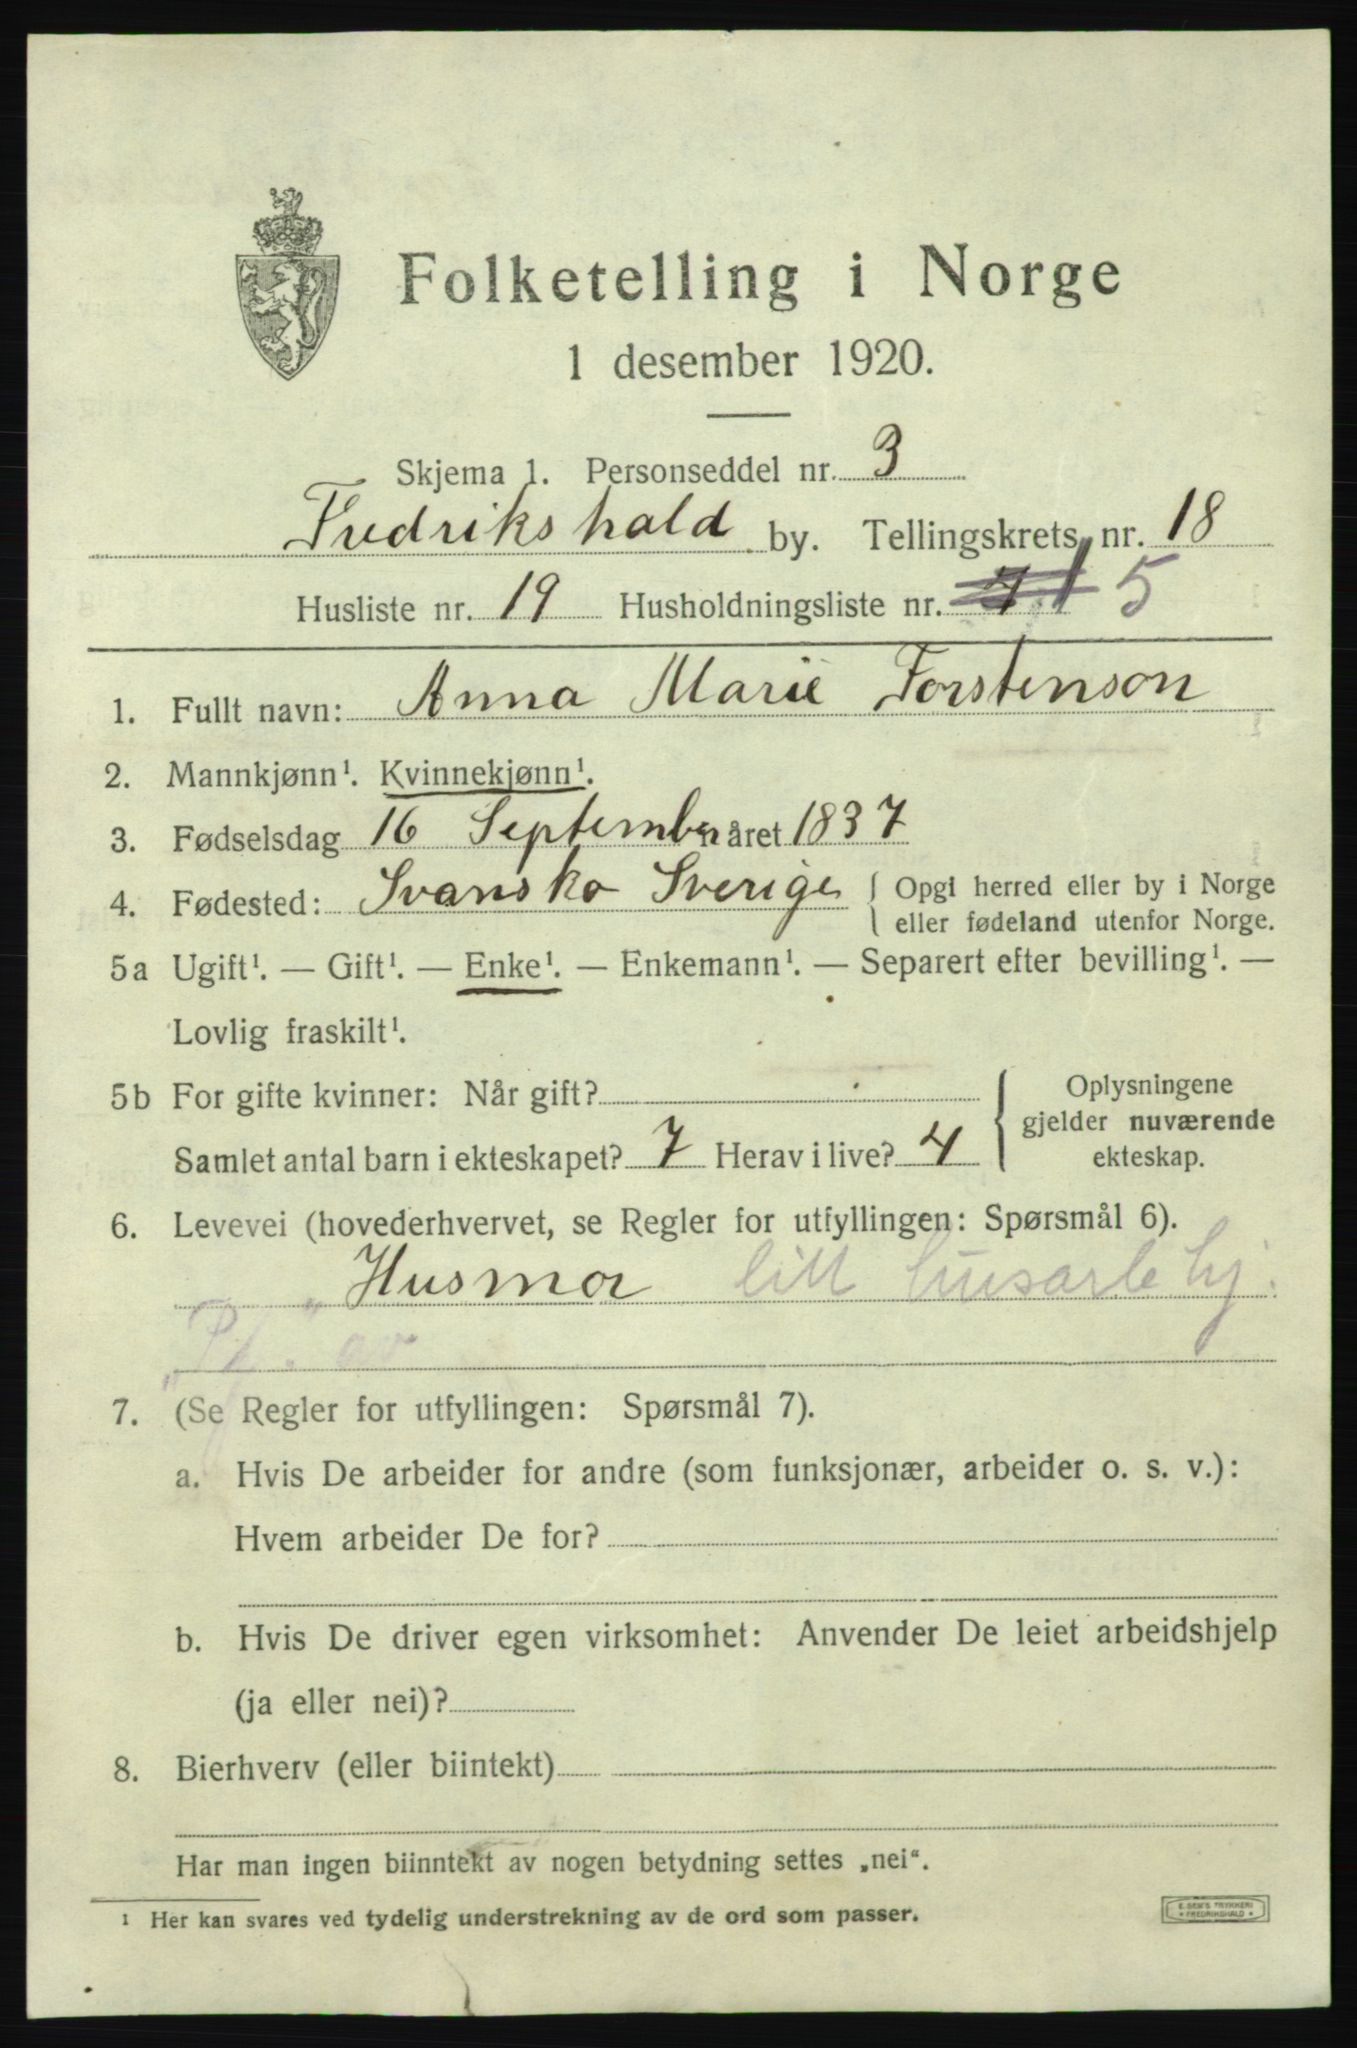 Folketelling i Norge
1 desember 1920.
Skjema 1. Personseddel nr. 3
Fredrikshald by. Tellingskrets nr. 18
Husliste nr. 19 Husholdningsliste nr. 5
1. Fullt navn: Anna Marie Torstenson
2. Mannkjønn¹. Kvinnekjønn¹.
3. Fødselsdag 16 September året 1837
4. Fødested: Svansko Sverige { Opgi herred eller by i Norge
eller fødeland utenfor Norge.
5a Ugift¹. — Gift¹. — Enke¹. — Enkemann¹. — Separert efter bevilling¹. —
Lovlig fraskilt¹.
5b For gifte kvinner: Når gift?
Samlet antal barn i ekteskapet? 7 Herav i live? 4
Oplysningene
gjelder nuværende
ekteskap.
6. Levevei (hovederhvervet, se Regler for utfyllingen: Spørsmål 6).
Husmor litt husarb hj.
7. (Se Regler for utfyllingen: Spørsmål 7).
a. Hvis De arbeider for andre (som funksjonær, arbeider o. s. v.):
Hvem arbeider De for?
b. Hvis De driver egen virksomhet: Anvender De leiet arbeidshjelp
(ja eller nei)?
8. Bierhverv (eller biintekt)
Har man ingen biinntekt av nogen betydning settes „nei“.
¹ Her kan svares ved tydelig understrekning av de ord som passer.
E. SEM'S TRYKKERI
* FREDRIKSHALD *